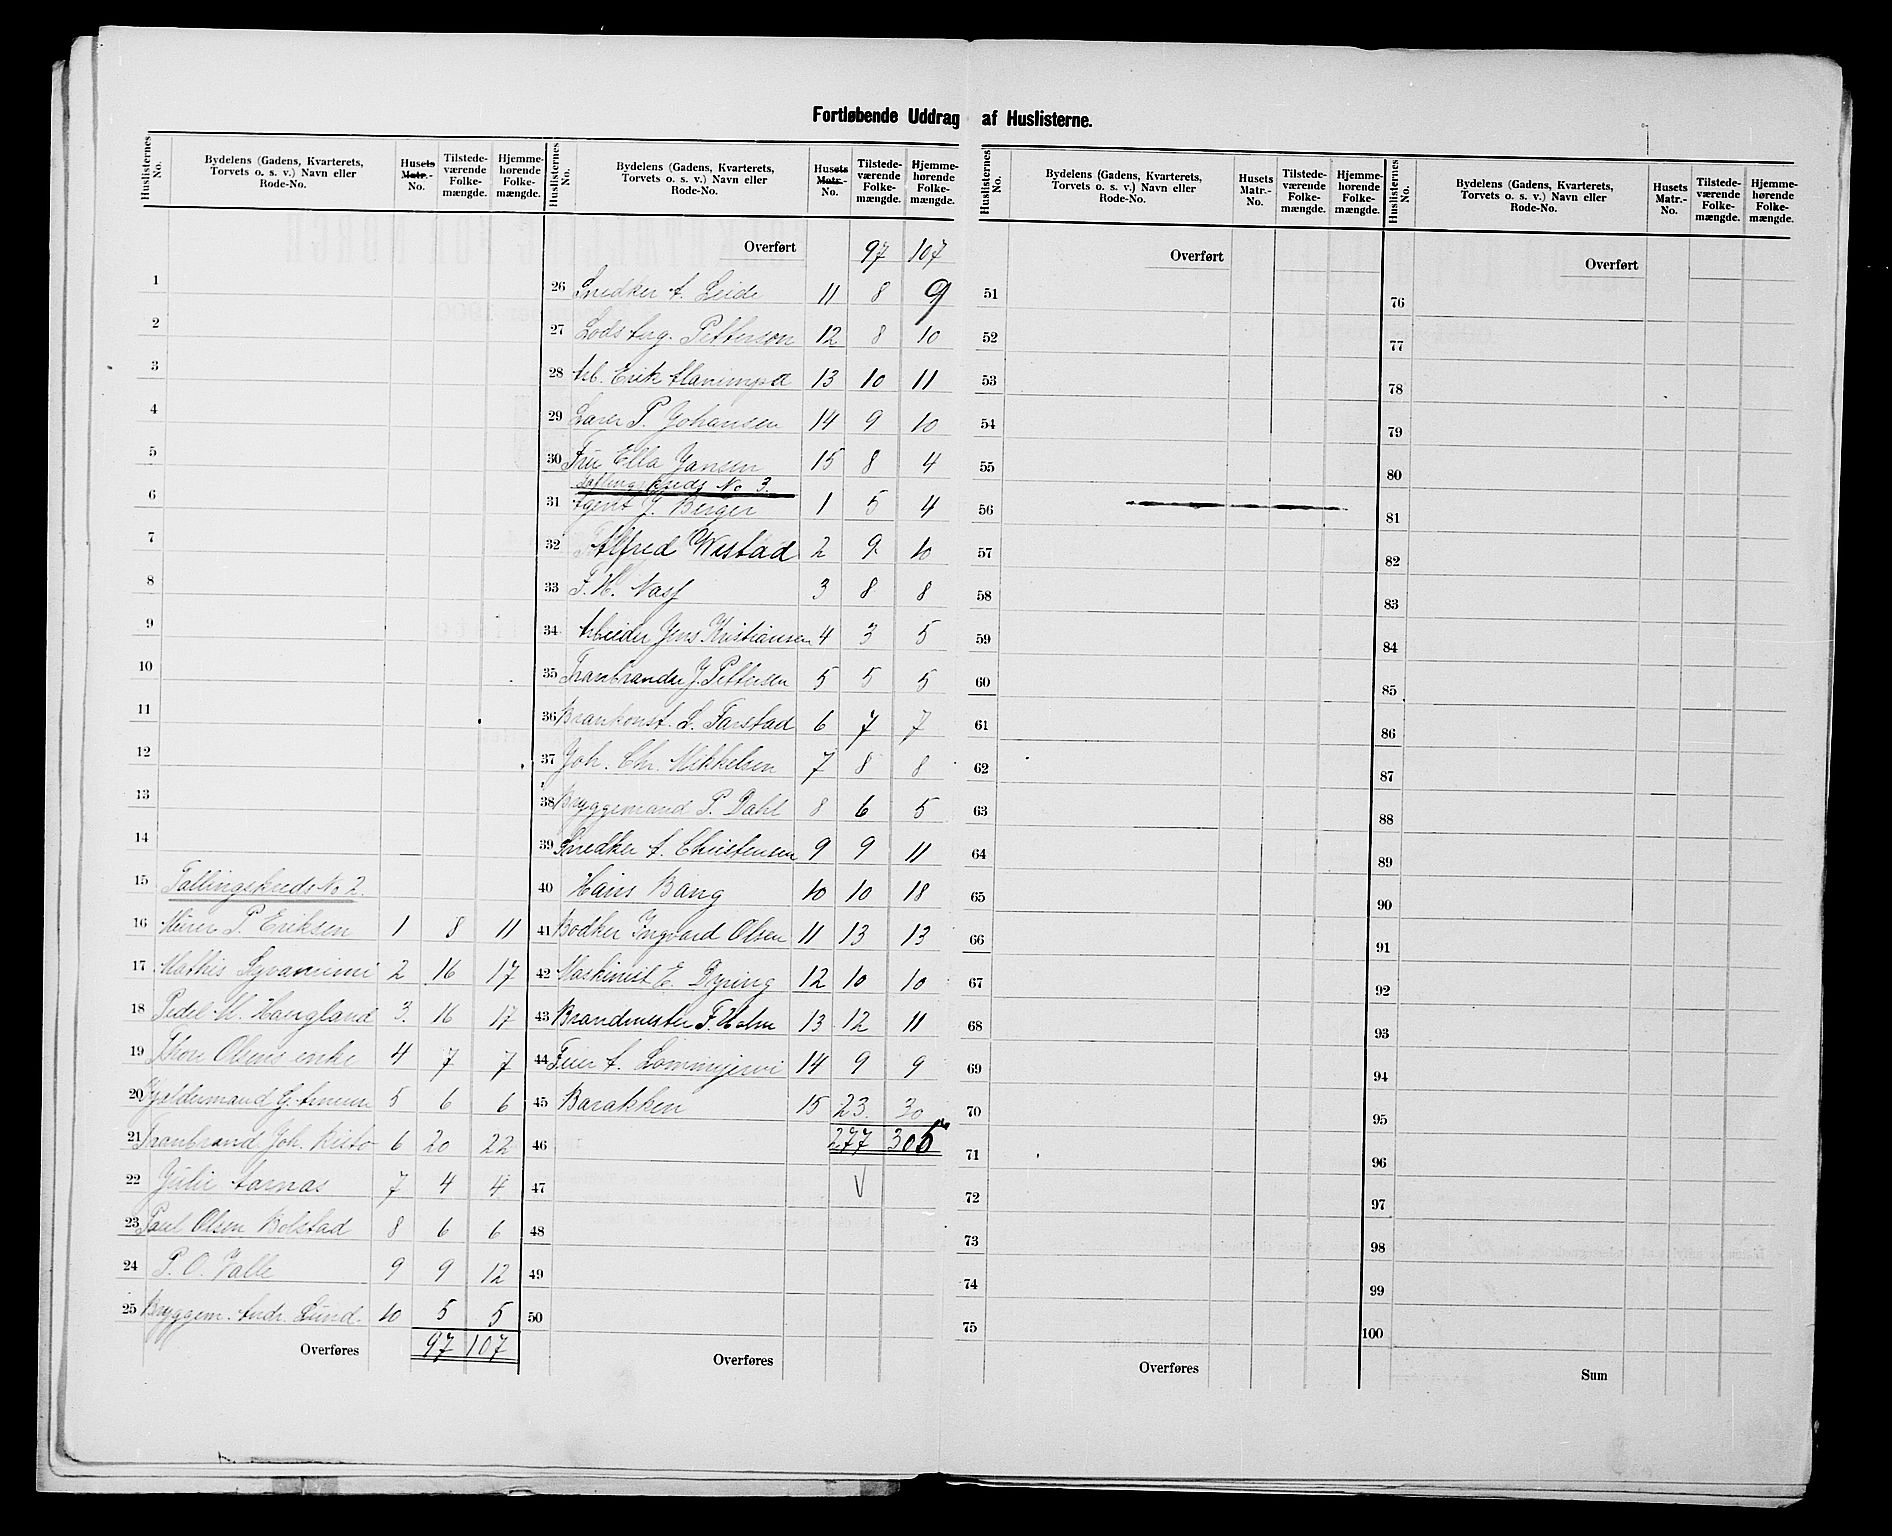 Fortløbende Uddrag af Huslisterne.
Huslisternes No. | Bydelens (Gadens, Kvarterets, Torvets o. s. v.) Navn eller Rode-No. | Husets Matr.-No. | Tilstedeværende Folkemængde. | Hjemmehørende Folkemængde.
1
2
3
4
5
6
7
8
9
10
11
12
13
14
15 Tællingskreds No 2.
16 Murer P. Eriksen 1 8 11
17 Mathis 2 16 17
18 Pedel M. Haugland 3. 16 17
19 Thore Olsens enke 4 7 7
20 5 6 6
21 Tranbrand Joh. Risto 6 20 22
22 Julie Aarnas 7 4 4
23 Paul Olsen Bolstad 8 6 6
24 P. O. Valle 9 9 12
25 Bryggem. Andr. Lund. 10 5 5
Overføres 97 107
Huslisternes No. | Bydelens (Gadens, Kvarterets, Torvets o. s. v.) Navn eller Rode-No. | Husets Matr.-No. | Tilstedeværende Folkemængde. | Hjemmehørende Folkemængde.
Overført 97 107
26 Snedker A. Leide 11 8 9
27 Lods Aug. Petterson 12 8 10
28 Arb. Erik 13 10 11
29 P. Johansen 14 9 10
30 Fru Ella Jansen 15 8 4
Tællingskreds No 3.
31 Agent J. Berger 1 5 4
32 Alfred Westad 2 9 10
33 F. H. 3 8 8
34 Arbeider Jens Kristiansen 4 3 5
35 Tranbrander J. Pettersen 5 5 5
36 L. Farstad 6 7 7
37 Joh. Chr. Mikkelsen 7 8 8
38 Bryggemand P. Dahl 8 6 5
39 Snedker A. Christensen 9 9 11
40 Hans Bang 10 10 18
41 Bødker Ingvard Olsen 11 13 13
42 Maskinist E. Dyring 12 10 10
43 Brandmester F. Holm 13 12 11
44 A. Lommijervi 14 9 9
45 Barakken 15 23. 30
46 277 305
47 V
48
49
50
Overføres
Huslisternes No. | Bydelens (Gadens, Kvarterets, Torvets o. s. v.) Navn eller Rode-No. | Husets Matr.-No. | Tilstedeværende Folkemængde. | Hjemmehørende Folkemængde.
Overført
51
52
53
54
55
56
57
58
59
60
61
62
63
64
65
66
67
68
69
70
71
72
73
74
75
Overføres
Huslisternes No. | Bydelens (Gadens, Kvarterets, Torvets o. s. v.) Navn eller Rode-No. | Husets Matr.-No. | Tilstedeværende Folkemængde. | Hjemmehørende Folkemængde.
Overført
76
77
78
79
80
81
82
83
84
85
86
87
88
89
90
91
92
93
94
95
96
97
98
99
100
Sum